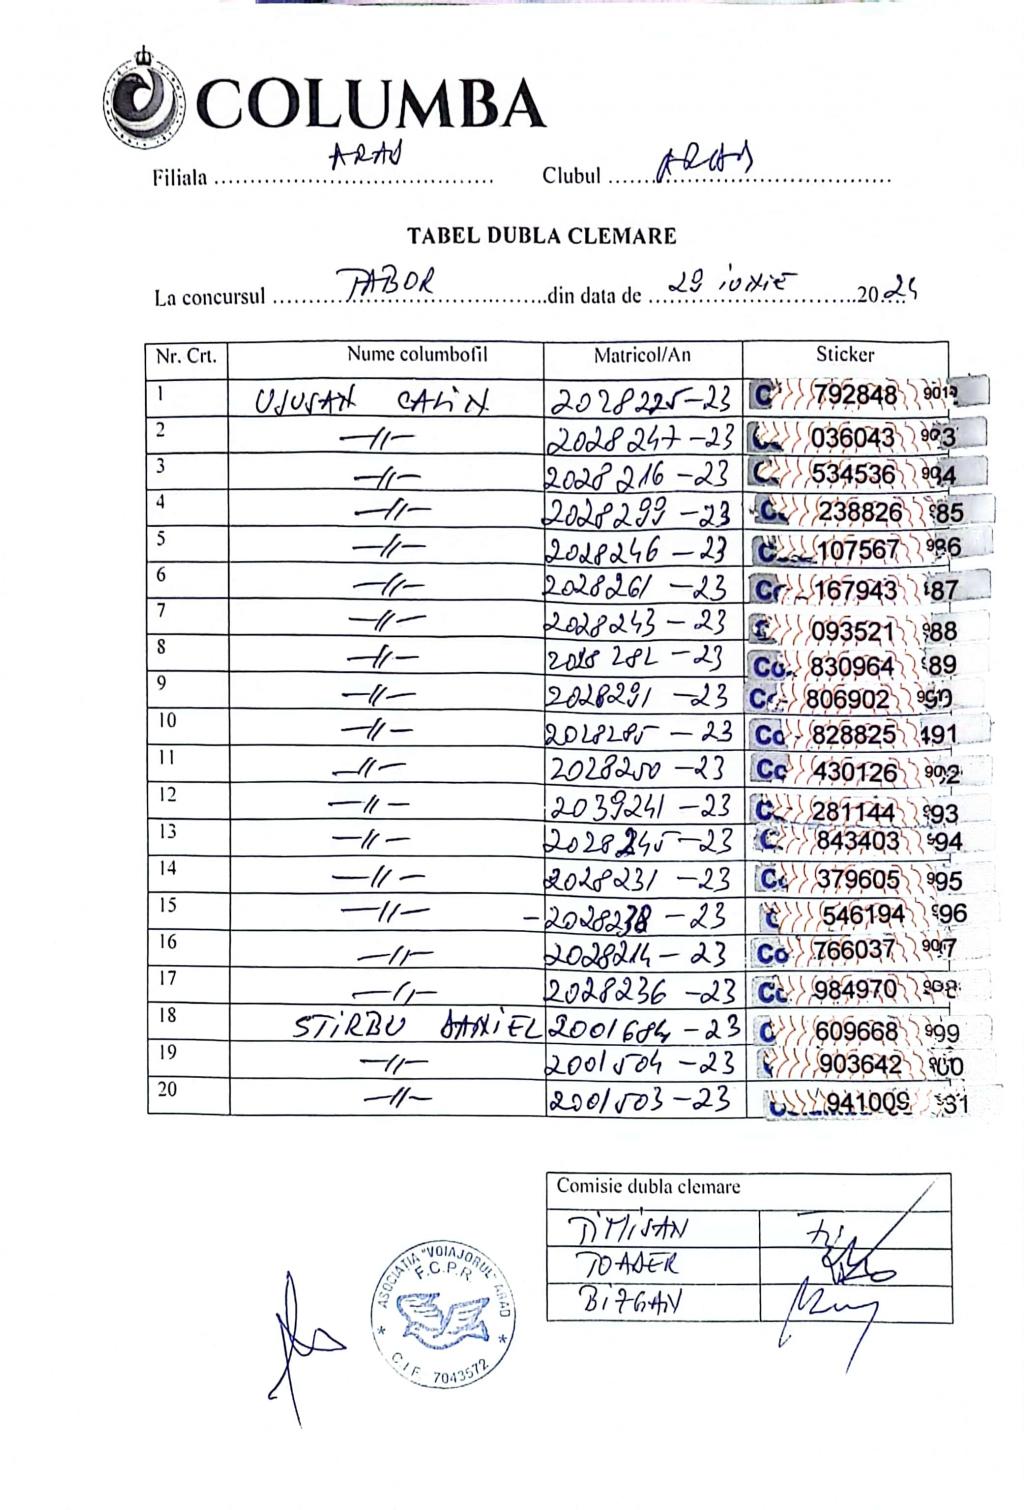 COLUMBA
Filiala ARAD Clubul ARAD
TABEL DUBLA CLEMARE
La concursul TABOR din data de 29 iunie 2024
Nr. Crt. Nume columbofil Matricol/An Sticker
1 UJUSAN CALIN 2028225-23 792848
2 —//— 2028247-23 036043
3 —//— 2028216-23 534536
4 —//— 2028299-23 238826
5 —//— 2028246-23 107567
6 —//— 2028261-23 167943
7 —//— 2028243-23 093521
8 —//— 2028282-23 830964
9 —//— 2028291-23 806902
10 —//— 2028285-23 828825
11 —//— 2028250-23 430126
12 —//— 2039241-23 281144
13 —//— 2028245-23 843403
14 —//— 2028231-23 379605
15 —//— -2028238-23 546194
16 —//— 2028214-23 766037
17 —//— 2028236-23 984970
18 STIRBU DANIEL 2001684-23 609668
19 —//— 2001504-23 903642
20 —//— 2001503-23 941009
Comisie dubla clemare
TIMISAN
TOADER
BIZGAN
ASOCIATIA "VOIAJORUL" ARAD
F.C.P.R.
C.I.F. 7043572